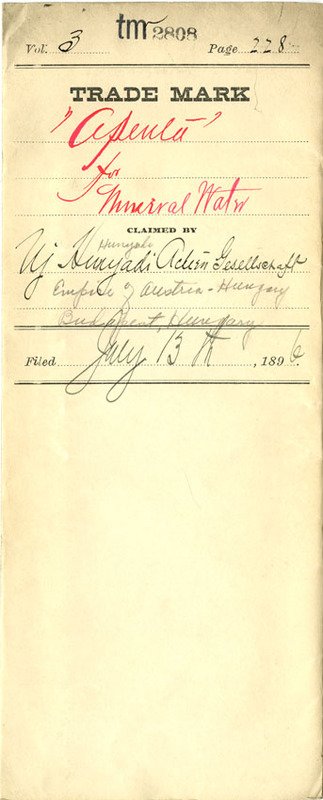 tm 2808
Vol. 3 Page 228
TRADE MARK
"Apenta"
for
Mineral Water
CLAIMED BY
Hunyadi
Uj Hunyadi Actien Gesellschaft
Empire of Austria-Hungary
Budapest, Hungary
Filed July 13th, 1896.